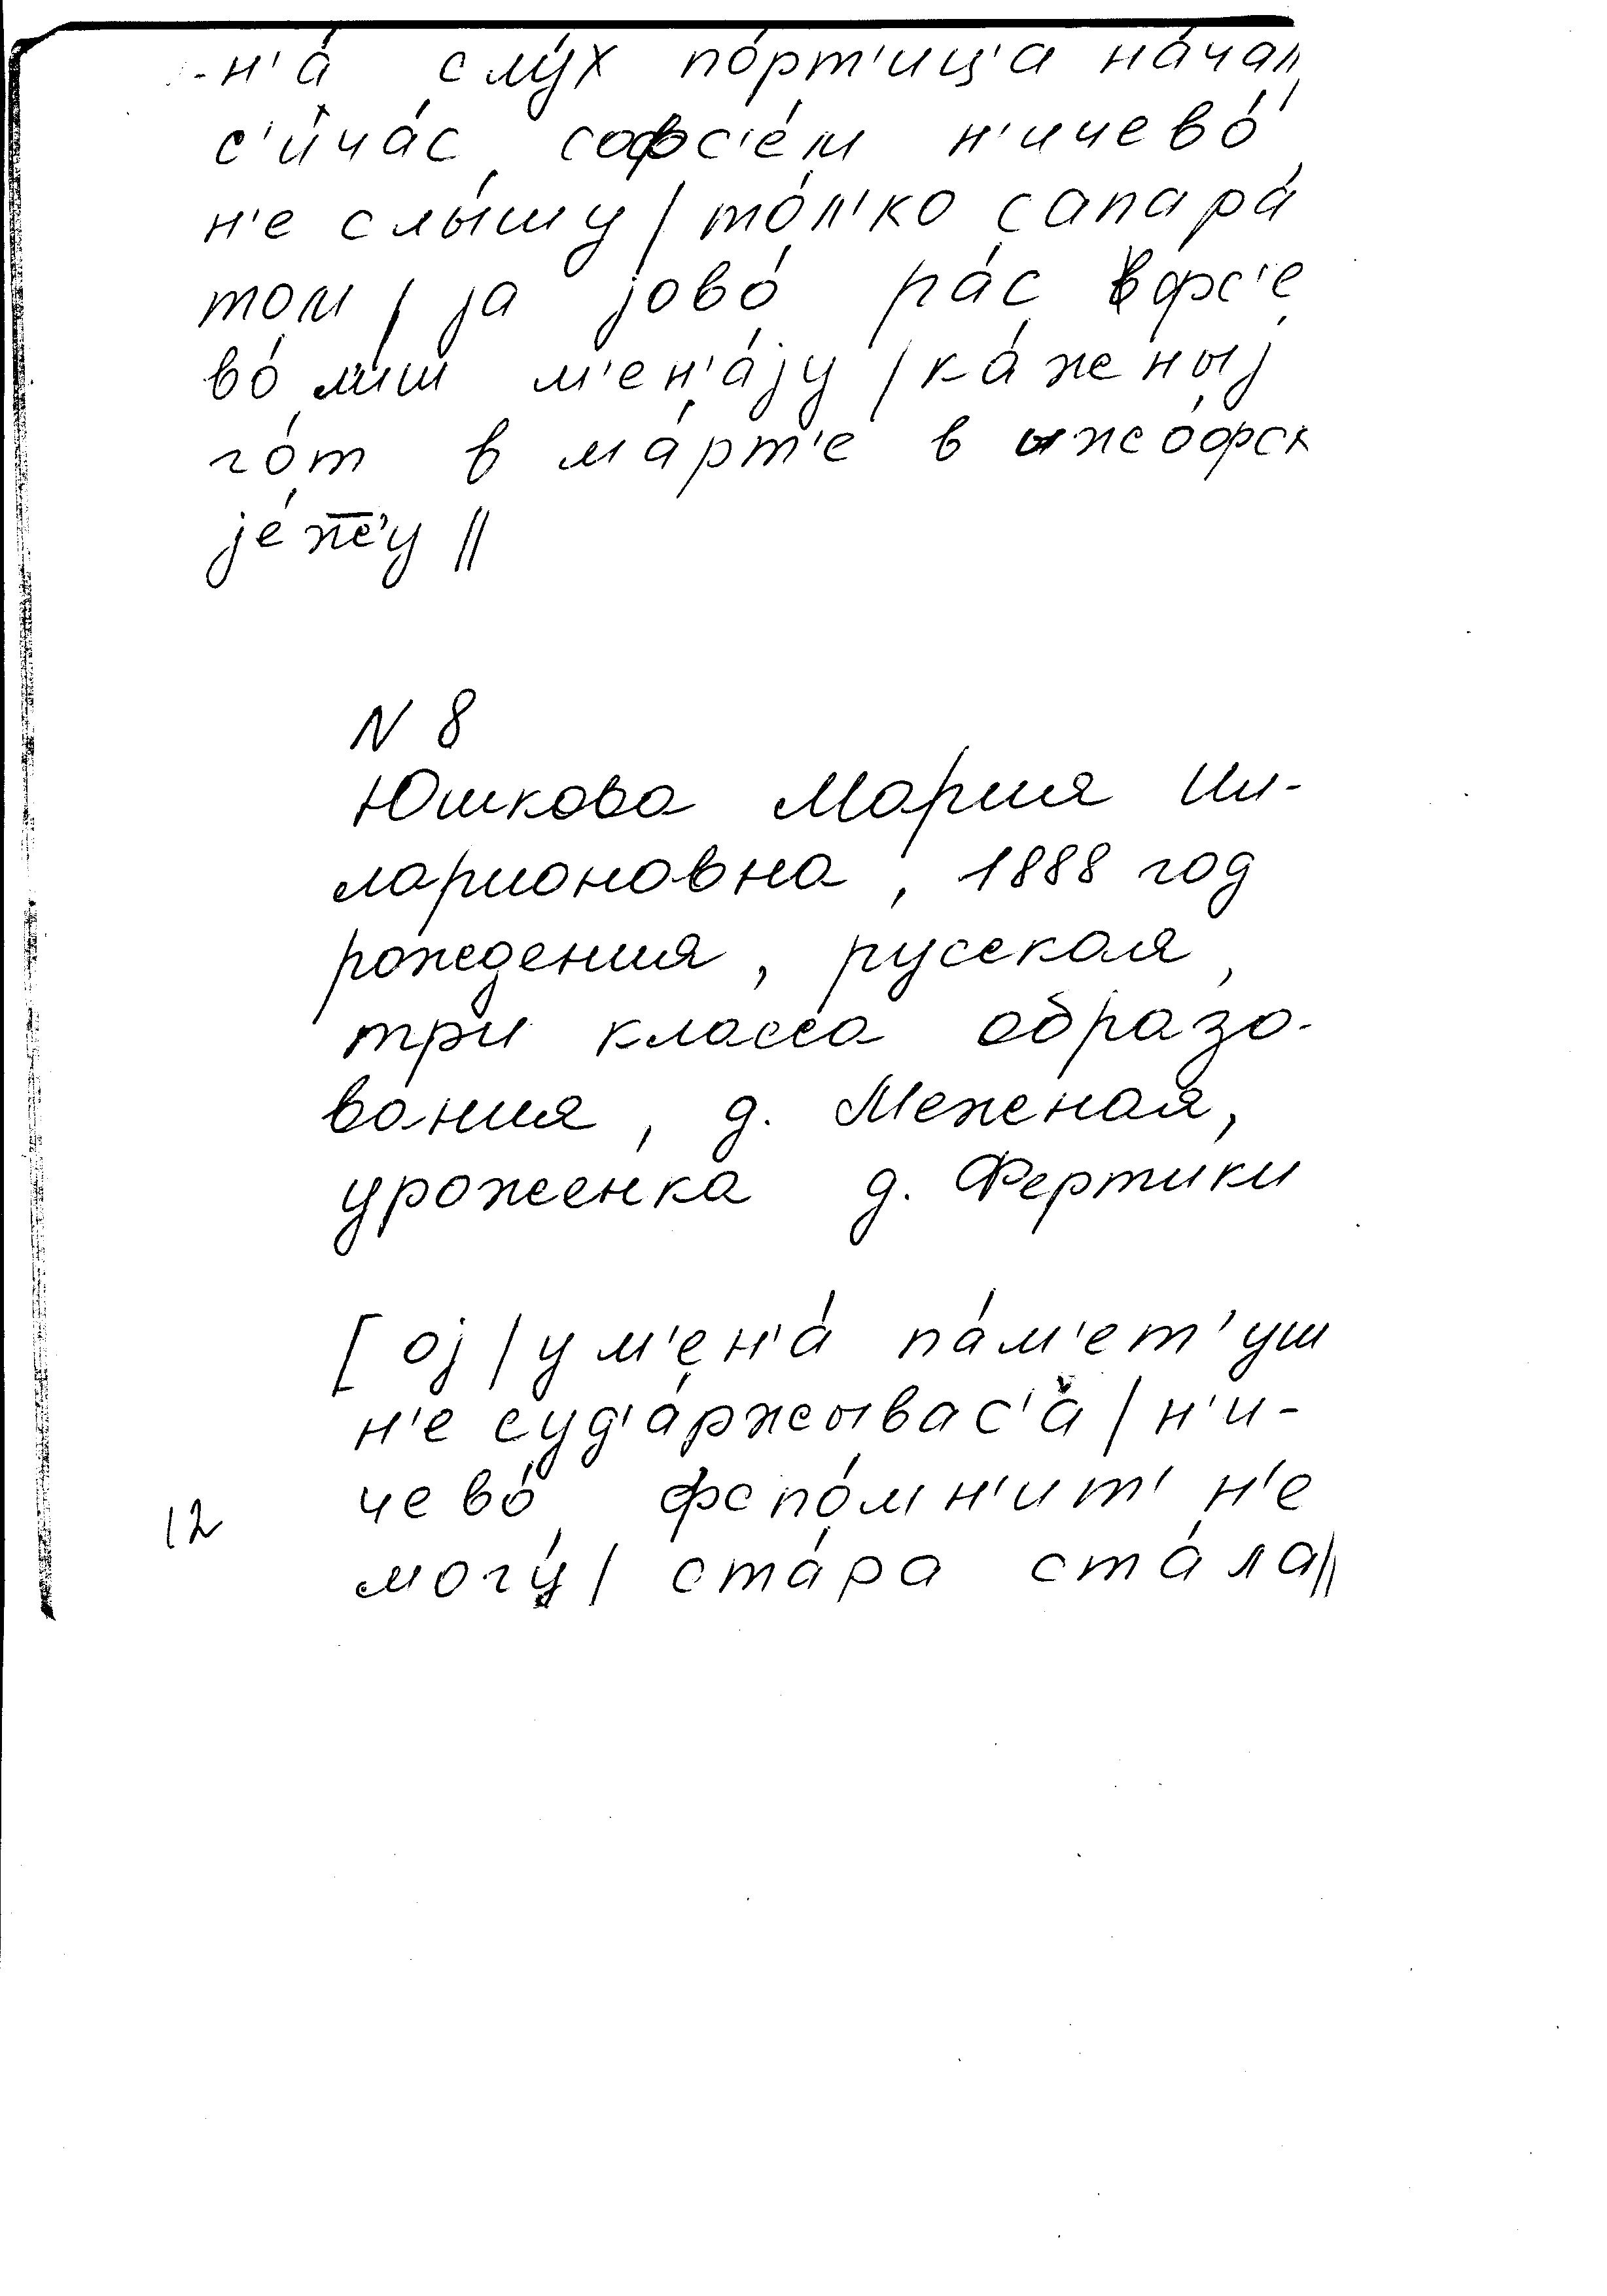 -н'а́ слу́х по́рт'иц'а на́чал
с'ийча́с софс'е́м н'ичево́
н'е слы́шу / то́л'ко сапара́
том / jа jово́ ра́с фс'е
во́ лиш м'ен'а́jу / ка́жныj
го́т в ма́рт'е в ыжо́фск
jе́ж̅'у ||
N 8
Юшкова Мария Ил-
ларионовна, 1888 год
рождения, русская,
три класса образо-
вания, д. Меженая,
уроженка д. Фертики
[оj / у м'ен'а́ па́м'ет' уш
н'е суд'а́ржывас'а / н'и-
чево́ фспо́мн'ит' н'е
могу́ / ста́ра ста́ла ||
12